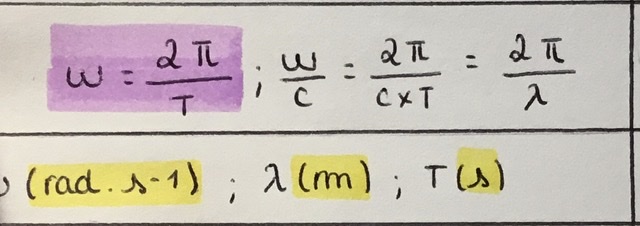 w = 2π/T ; w/c = 2π/(c×T) = 2π/λ
(rad. s-1) ; λ (m) ; T (s)